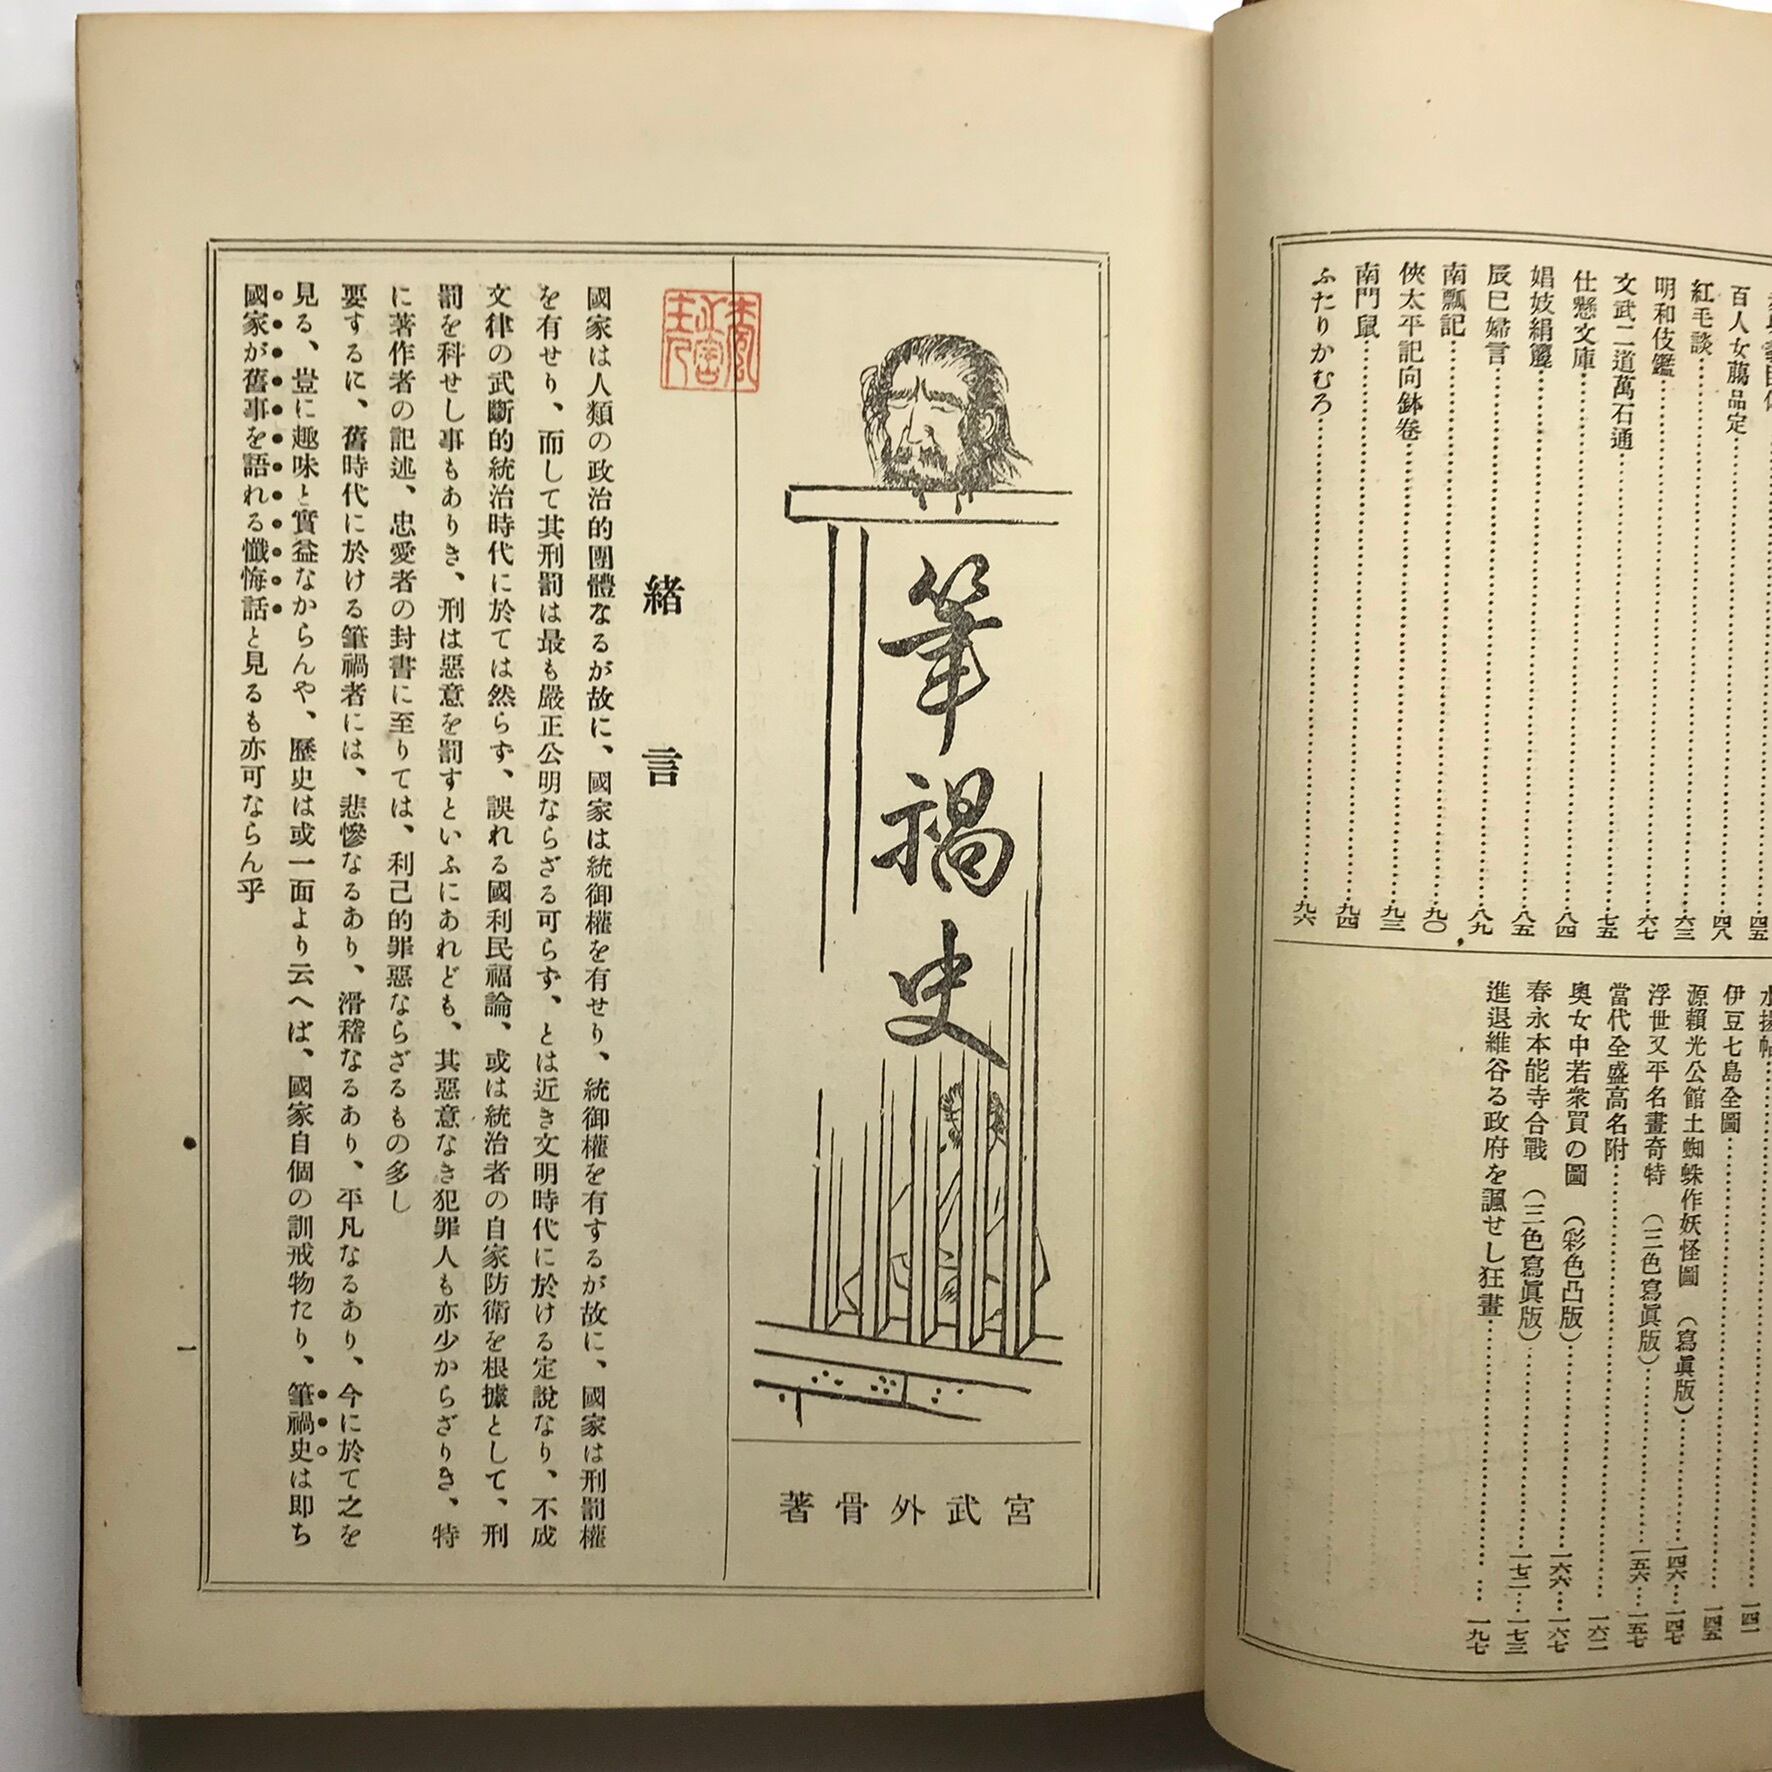 百人女﨟品定……四八
紅毛談……六三
明和伎鑑……六七
文武二道萬石通……七五
仕懸文庫……八四
娼妓絹籭……八五
辰巳婦言……八九
南瓢記……九〇
俠太平記向鉢卷……九三
南門鼠……九四
ふたりかむろ……九六
伊豆七島全圖……一四五
源賴光公館土蜘蛛作妖怪圖（寫眞版）……一四六…一四七
浮世又平名畫奇特（三色寫眞版）……一五六…一五七
當代全盛高名附……一六二
奧女中若衆買の圖（彩色凸版）……一六六…一六七
春永本能寺合戰（三色寫眞版）……一七二…一七三
進退維谷る政府を諷せし狂畫……一九七
筆禍史
宮武外骨著
緒言
國家は人類の政治的團體なるが故に、國家は統御權を有せり、統御權を有するが故に、國家は刑罰權
を有せり、而して其刑罰は最も嚴正公明ならざる可らず、とは近き文明時代に於ける定說なり、不成
文律の武斷的統治時代に於ては然らず、誤れる國利民福論、或は統治者の自家防衛を根據として、刑
罰を科せし事もありき、刑は惡意を罰すといふにあれども、其惡意なき犯罪人も亦少からざりき、特
に著作者の記述、忠愛者の封書に至りては、利己的罪惡ならざるもの多し
要するに、舊時代に於ける筆禍者には、悲慘なるあり、滑稽なるあり、平凡なるあり、今に於て之を
見る、豈に趣味と實益なからんや、歷史は或一面より云へば、國家自個の訓戒物たり、筆禍史は即ち
國家が舊事を語れる懺悔話と見るも亦可ならん乎
一